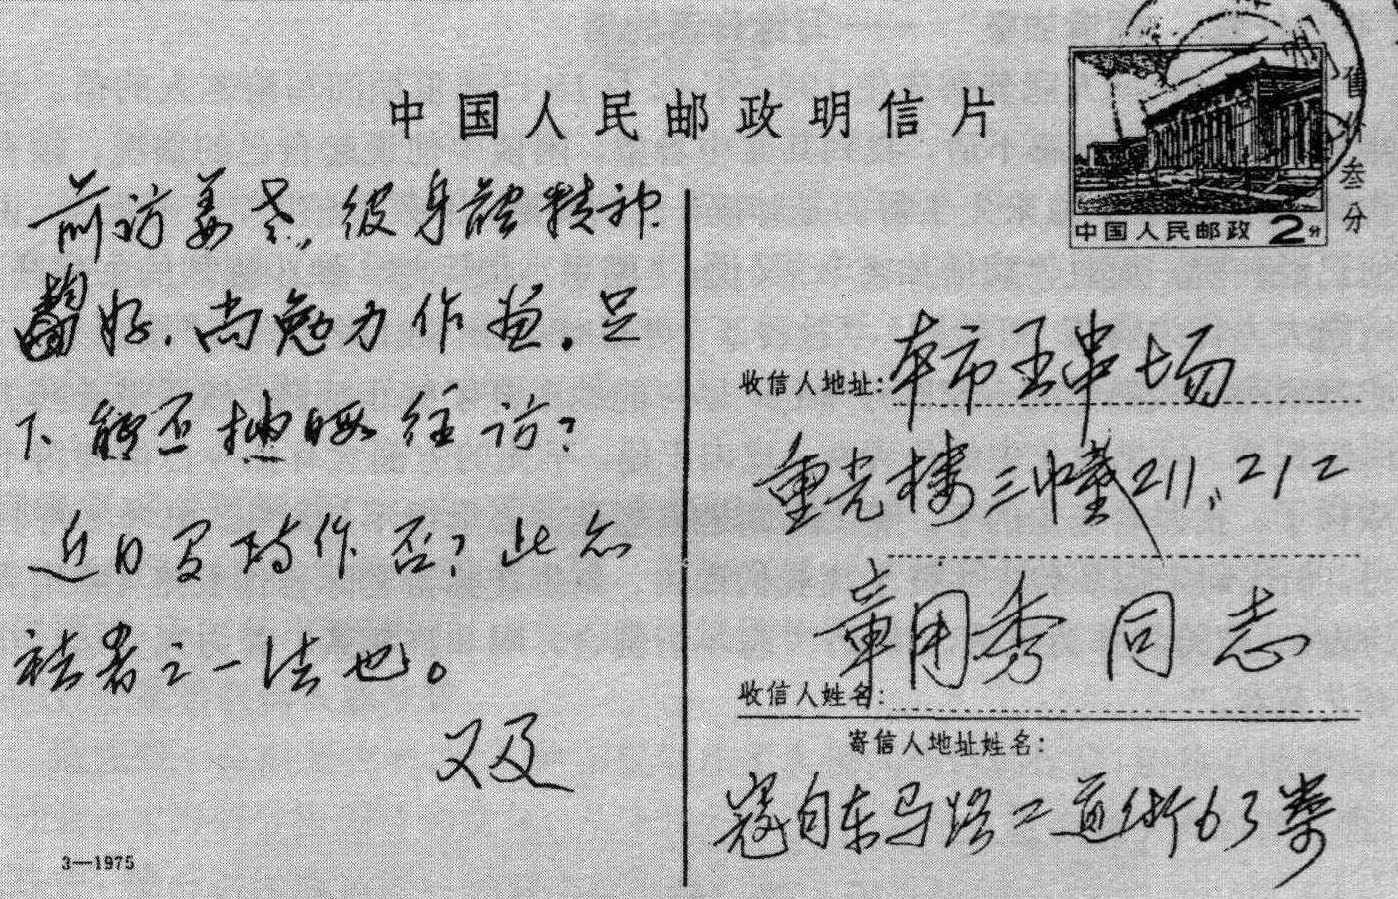 中国人民邮政明信片
售价叁分
中国人民邮政 2分
前访姜老,彼身體精神
好.尚勉力作画.足
下能否抽暇往访?
近日写诗作否?此亦
祛暑之一法也。
又及
3—1975
收信人地址:本市王串场
重光楼三幢211,212
章用秀同志
收信人姓名:
寄信人地址姓名:
寇自东马路二道街63号